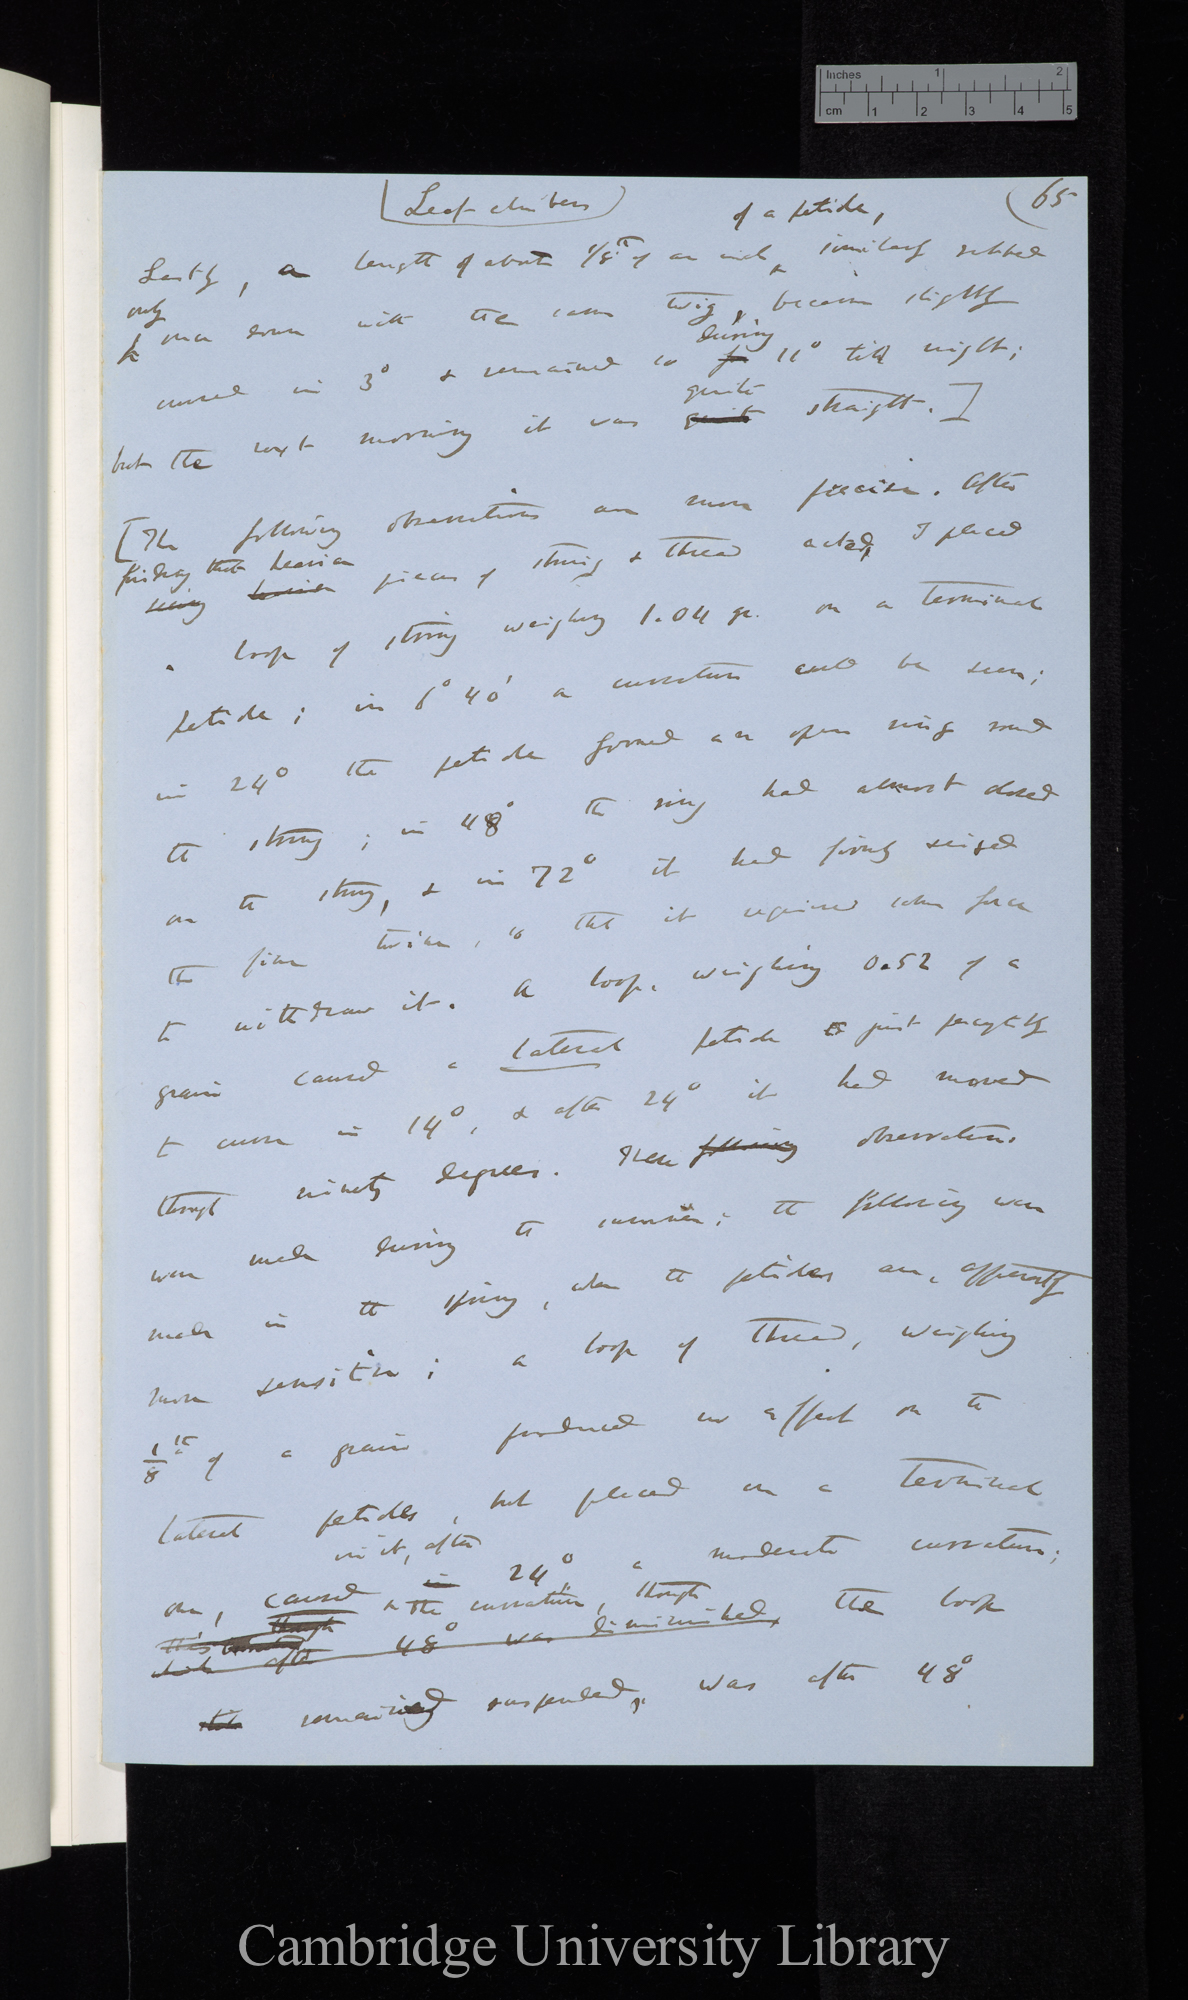 (Leaf climbers)
(65
of a petiole,
Lastly, a length of about 1/8th of an inch, similarly rubbed
only
once down with the same twig, became slightly
during
curved in 3° & remained so for 11° till night;
quite
but the next morning it was quite straight.]
[The following observations are more precise. After
finding that heavier
seeing heavier pieces of string & thread acted, I placed
a loop of string weighing 1.04 gr. on a terminal
petiole; in 6° 40' a curvature could be seen;
in 24° the petiole formed an open ring round
the string; in 48° the ring had almost closed
on the string, & in 72° it had firmly seized
the fine twine, so that it required some force
to withdraw it. A loop, weighing 0.52 of a
grain caused a lateral petiole just perceptibly
to curve in 14°, & after 24° it had moved
through ninety degrees. These following observations
were made during the summer; the following were
made in the spring, when the petioles are, apparently
more sensitive; a loop of thread, weighing
1/8th of a grain produced no effect on the
lateral petioles, but placed on a terminal
in it, after
one, caused in 24° a moderate curvature;
though & the curvature, though
which after 48° was diminished, the loop
remained suspended, was after 48°
Inches 1 2
cm 1 2 3 4 5
Cambridge University Library